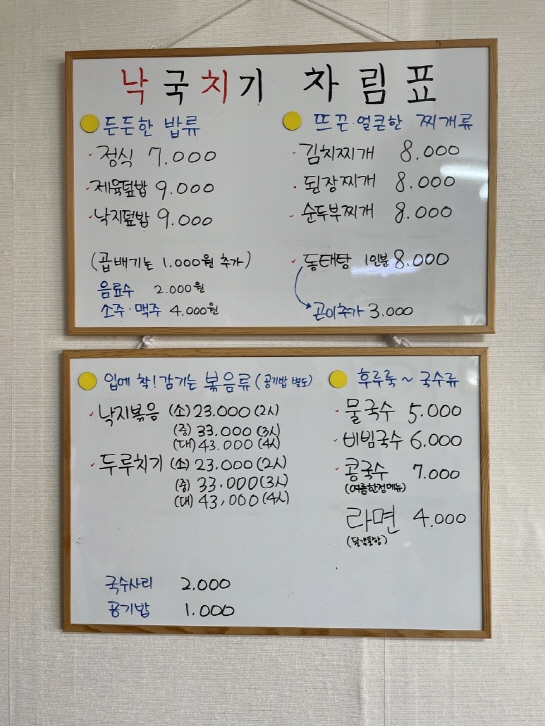 낙국치기 차림표
든든한 밥류
정식 7.000
제육덮밥 9.000
낙지덮밥 9.000
(곱배기는 1.000원 추가)
음료수 2.000원
소주·맥주 4.000원
뜨끈 얼큰한 찌개류
김치찌개 8.000
된장찌개 8.000
순두부찌개 8.000
동태탕 1인분 8.000
곤이추가 3.000
입에 착! 감기는 볶음류 (공기밥 별도)
낙지볶음 (소) 23.000 (2人)
(중) 33.000 (3人)
(대) 43.000 (4人)
두루치기 (소) 23.000 (2人)
(중) 33.000 (3人)
(대) 43,000 (4人)
국수사리 2.000
공기밥 1.000
후루룩~ 국수류
물국수 5.000
비빔국수 6.000
콩국수 7.000
(여름한정메뉴)
라면 4.000